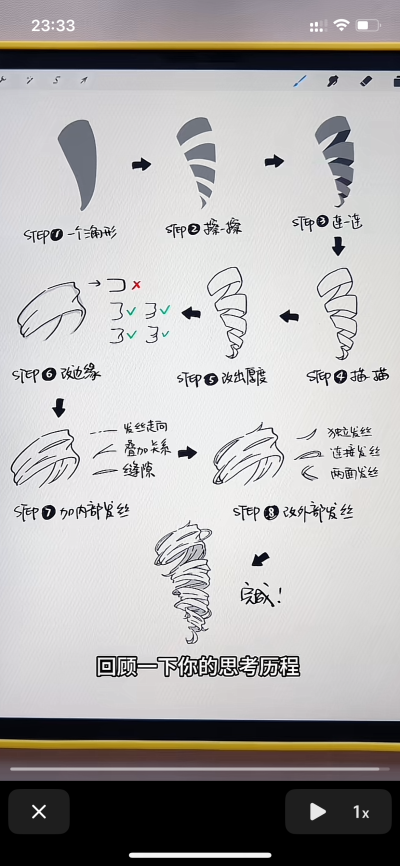 23:33
STEP 1 一个三角形
STEP 2 擦一擦
STEP 3 连一连
STEP 4 描一描
STEP 5 改出厚度
STEP 6 改边缘
STEP 7 加内部发丝
发丝走向
叠加关系
缝隙
STEP 8 改外部发丝
独立发丝
连接发丝
两面发丝
完成!
回顾一下你的思考历程
1x